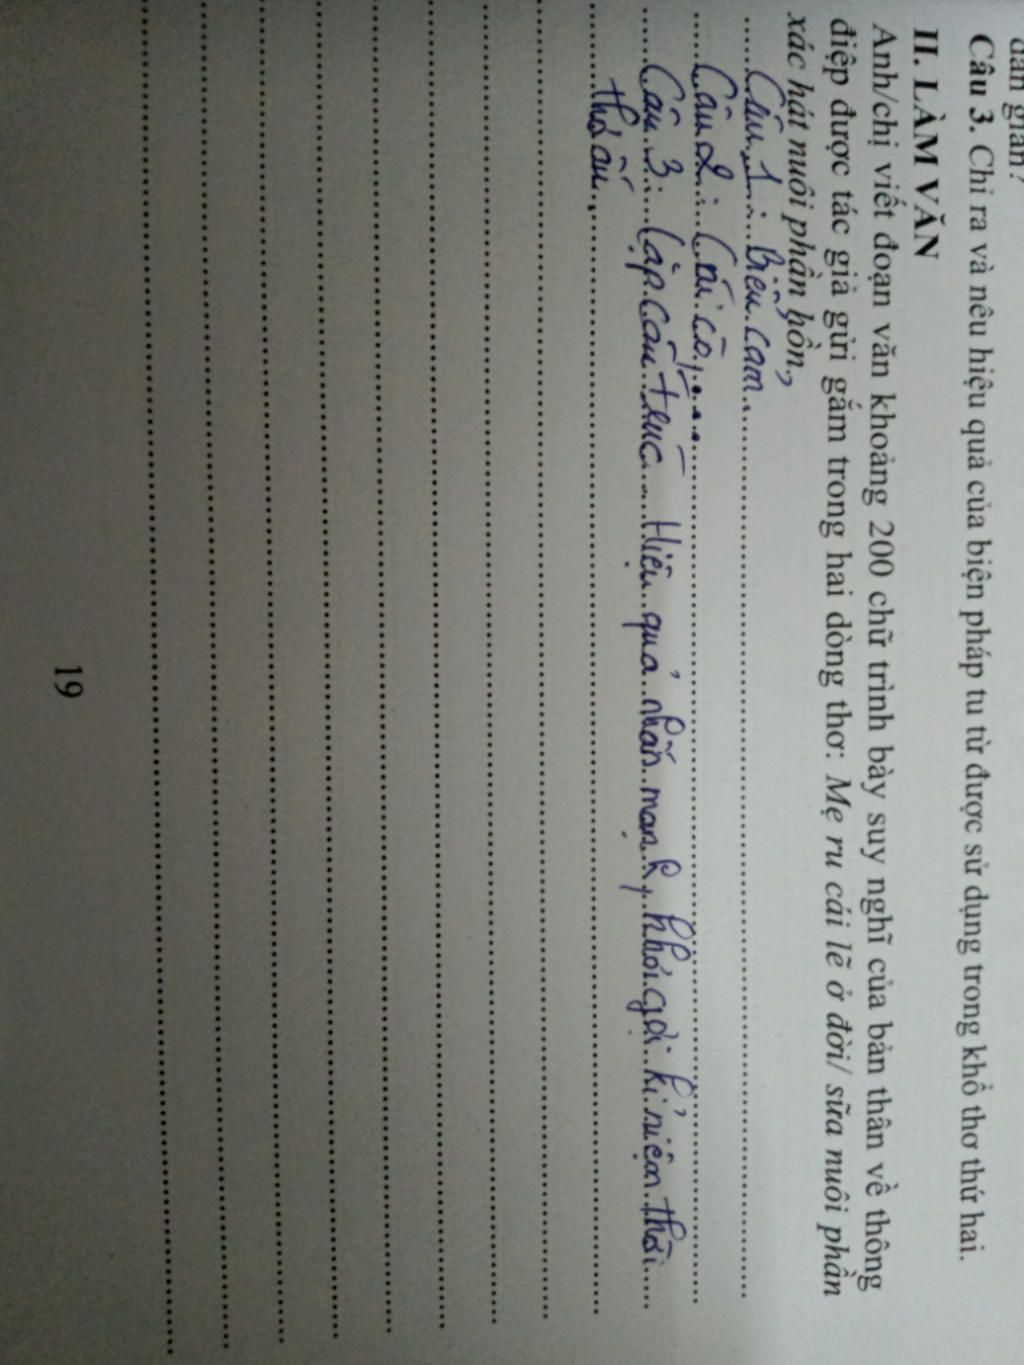 dân gian?
Câu 3. Chỉ ra và nêu hiệu quả của biện pháp tu từ được sử dụng trong khổ thơ thứ hai.
II. LÀM VĂN
Anh/chị viết đoạn văn khoảng 200 chữ trình bày suy nghĩ của bản thân về thông
điệp được tác giả gửi gắm trong hai dòng thơ: Mẹ ru cái lẽ ở đời/ sữa nuôi phần
xác hát nuôi phần hồn,
Câu 1: Biểu cảm
Câu 2: Cái cò,...
Câu 3: Lặp cấu trúc. Hiệu quả nhấn mạnh, khơi gợi kỉ niệm thời
thơ ấu.
19